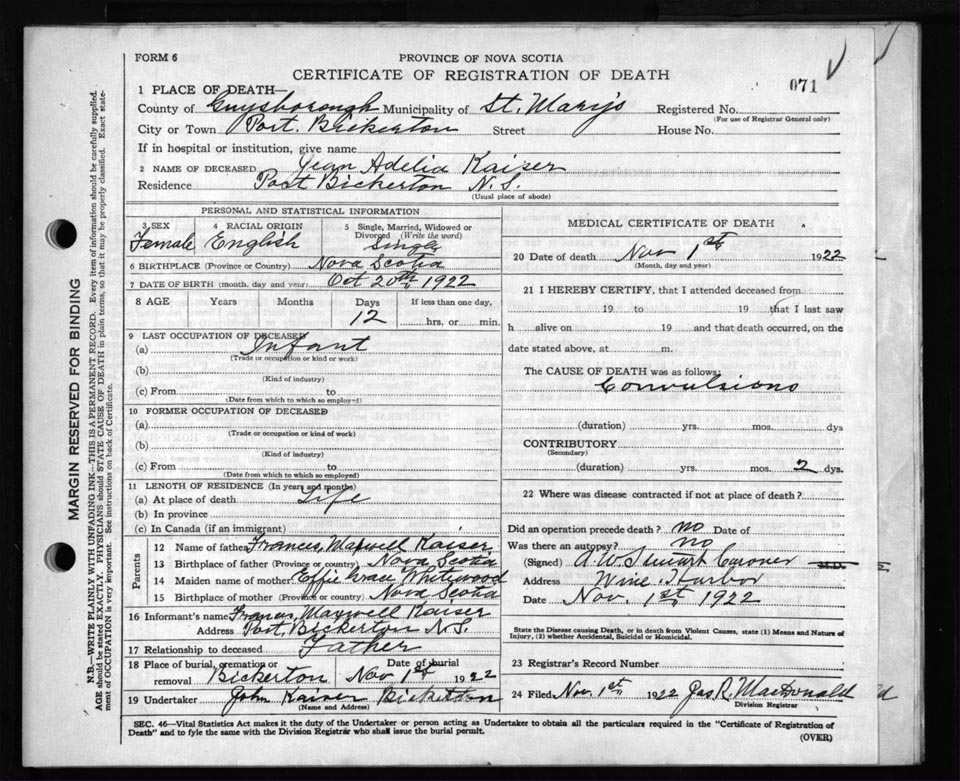 FORM 6
PROVINCE OF NOVA SCOTIA
CERTIFICATE OF REGISTRATION OF DEATH
071
1 PLACE OF DEATH—
County of Guysborough Municipality of St. Mary's Registered No.
(For use of Registrar General only)
City or Town Port. Bickerton Street House No.
If in hospital or institution, give name
2 NAME OF DECEASED Jean Adelia Kaiser
Residence Port Bickerton N.S.
(Usual place of abode)
PERSONAL AND STATISTICAL INFORMATION
3 SEX Female
4 RACIAL ORIGIN English
5 Single, Married, Widowed or Divorced (Write the word) Single
6 BIRTHPLACE (Province or Country) Nova Scotia
7 DATE OF BIRTH (month, day and year) Oct 20th 1922
8 AGE Years Months Days If less than one day,
12 hrs. or min.
9 LAST OCCUPATION OF DECEASED
(a) Infant
(Trade or occupation or kind or work)
(b)
(Kind of industry)
(c) From to
(Date from which to which so employed)
10 FORMER OCCUPATION OF DECEASED
(a)
(Trade or occupation or kind of work)
(b)
(Kind of industry)
(c) From to
(Date from which to which so employed)
11 LENGTH OF RESIDENCE (In years and months)
(a) At place of death Life
(b) In province
(c) In Canada (if an immigrant)
Parents
12 Name of father Francis Maxwell Kaiser
13 Birthplace of father (Province or country) Nova Scotia
14 Maiden name of mother Effie Grace Whitewood
15 Birthplace of mother (Province or country) Nova Scotia
16 Informant's name Francis Maxwell Kaiser
Address Port. Bickerton N.S.
17 Relationship to deceased Father
18 Place of burial, cremation or removal Bickerton Date of burial Nov 1st 1922
19 Undertaker John Kaiser Bickerton
(Name and Address)
MEDICAL CERTIFICATE OF DEATH
20 Date of death Nov 1st 1922
(Month, day and year)
21 I HEREBY CERTIFY, that I attended deceased from
19 to 19 that I last saw
h alive on 19 and that death occurred, on the
date stated above, at m.
The CAUSE OF DEATH was as follows:
Convulsions
(duration) yrs. mos. dys
CONTRIBUTORY
(Secondary)
(duration) yrs. mos. 2 dys.
22 Where was disease contracted if not at place of death?
Did an operation precede death? no Date of
Was there an autopsy? no
(Signed) A W Stewart Coroner M.D.
Address Wine Harbor
Date Nov. 1st 1922
State the Disease causing Death, or in death from Violent Causes, state (1) Means and Nature of
Injury, (2) whether Accidental, Suicidal or Homicidal.
23 Registrar's Record Number
24 Filed Nov. 1st 1922 Jas R. MacDonald
Division Registrar
SEC. 46—Vital Statistics Act makes it the duty of the Undertaker or person acting as Undertaker to obtain all the particulars required in the "Certificate of Registration of
Death" and to fyle the same with the Division Registrar who shall issue the burial permit.
(OVER)
MARGIN RESERVED FOR BINDING
N.B.—WRITE PLAINLY WITH UNFADING INK—THIS IS A PERMANENT RECORD. Every item of information should be carefully supplied.
AGE should be stated EXACTLY. PHYSICIANS should STATE CAUSE OF DEATH in plain terms, so that it may be properly classified. Exact state-
ment of OCCUPATION is very important. See instructions on back of Certificate.